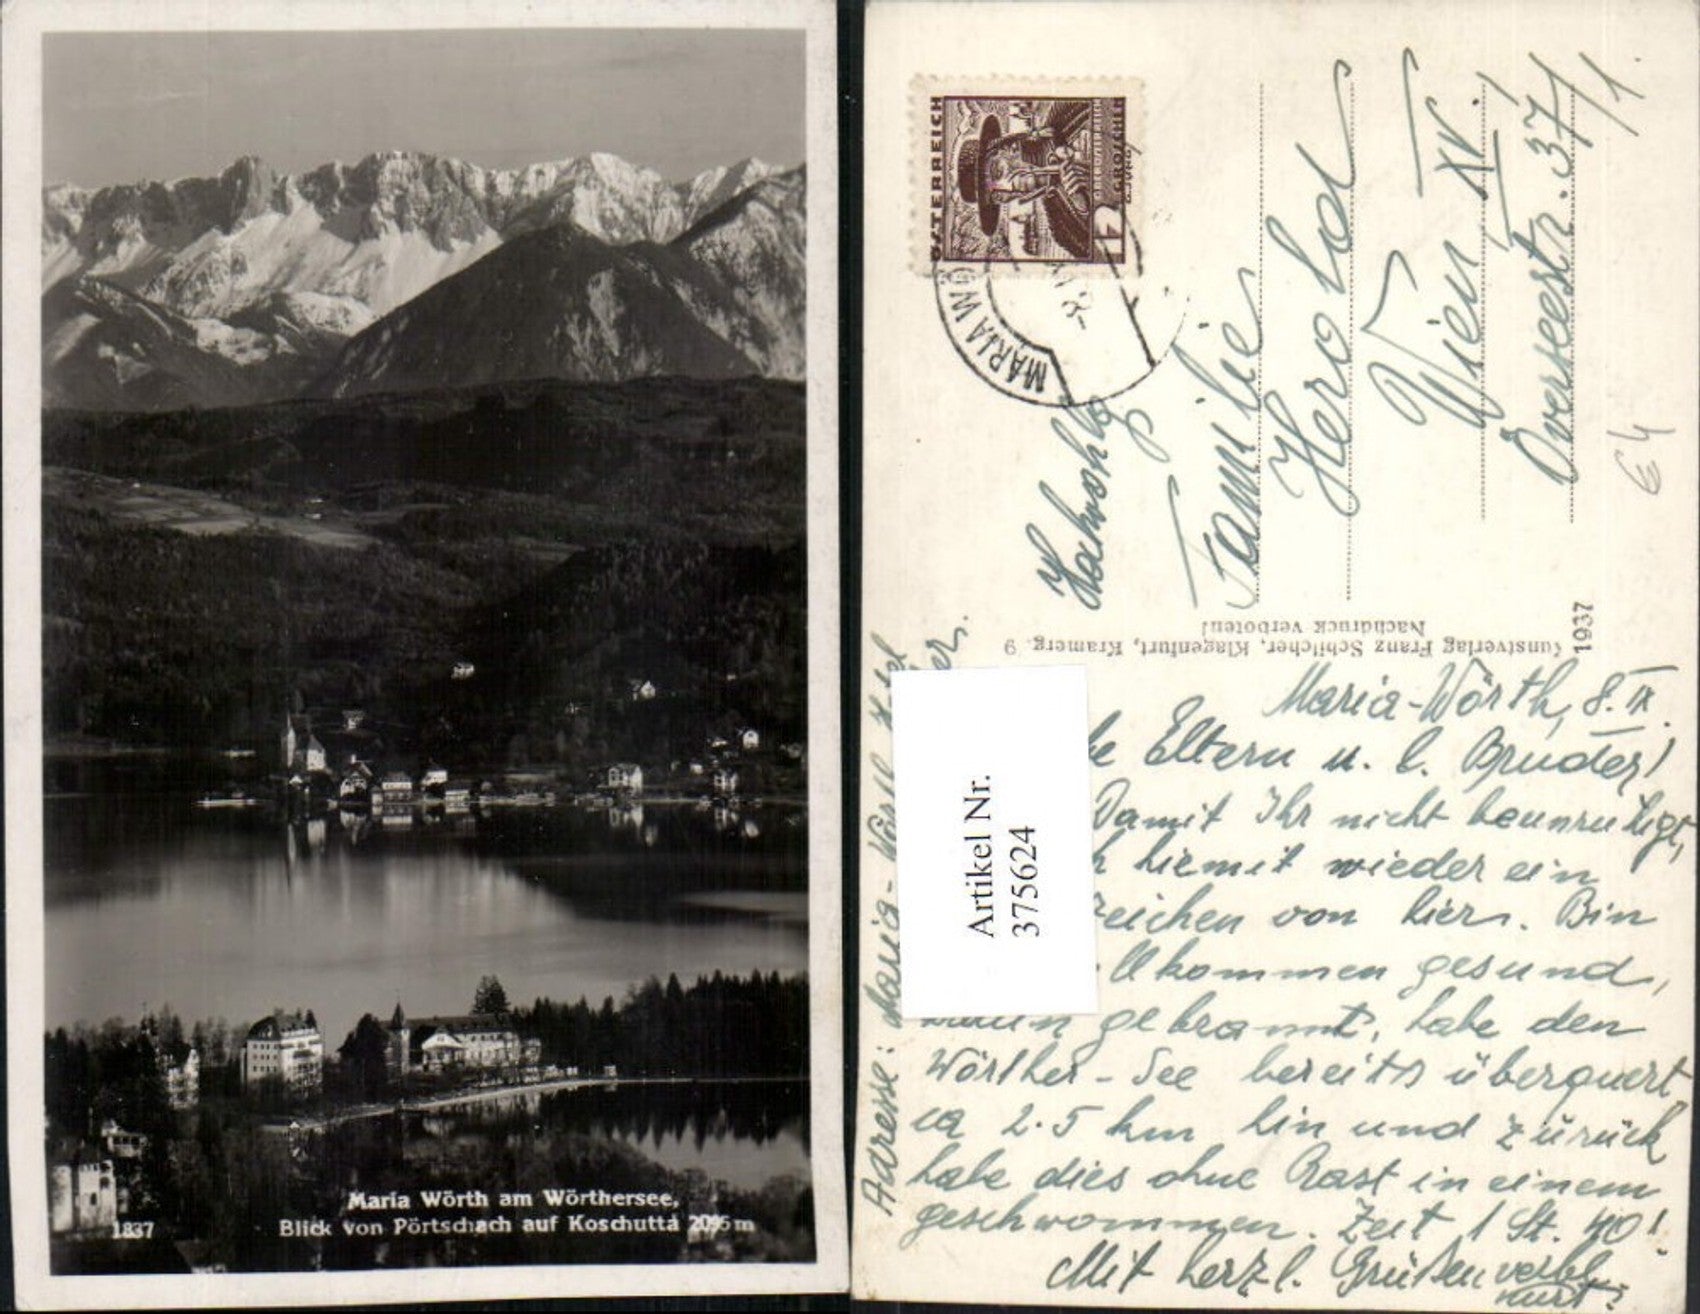 Maria Wörth am Wörthersee,
Blick von Pörtschach auf Koschutta 2095 m
1837
ÖSTERREICH
OBERÖSTERREICH
GROSCHEN
MARIA WÖ
Hochwohlg.
Familie
Herold
Wien XV.
Överseestr. 37/1.
Kunstverlag Franz Schilcher, Klagenfurt, Kramerg. 9
Nachdruck verboten!
1937
Artikel Nr.
3756624
Maria-Wörth, 8. IX.
Eltern u. l. Bruder!
Damit Ihr nicht beunruhigt,
hiemit wieder ein
zeichen von hier. Bin
llkommen gesund,
gebrannt, habe den
Wörther-See bereits überquert
ca 2.5 km hin und zurück
habe dies ohne Rast in einem
geschwommen. Zeit 1 St. 40!
Mit herzl. Grüßen verbl.
Kurt
Adresse: Maria-Wörth